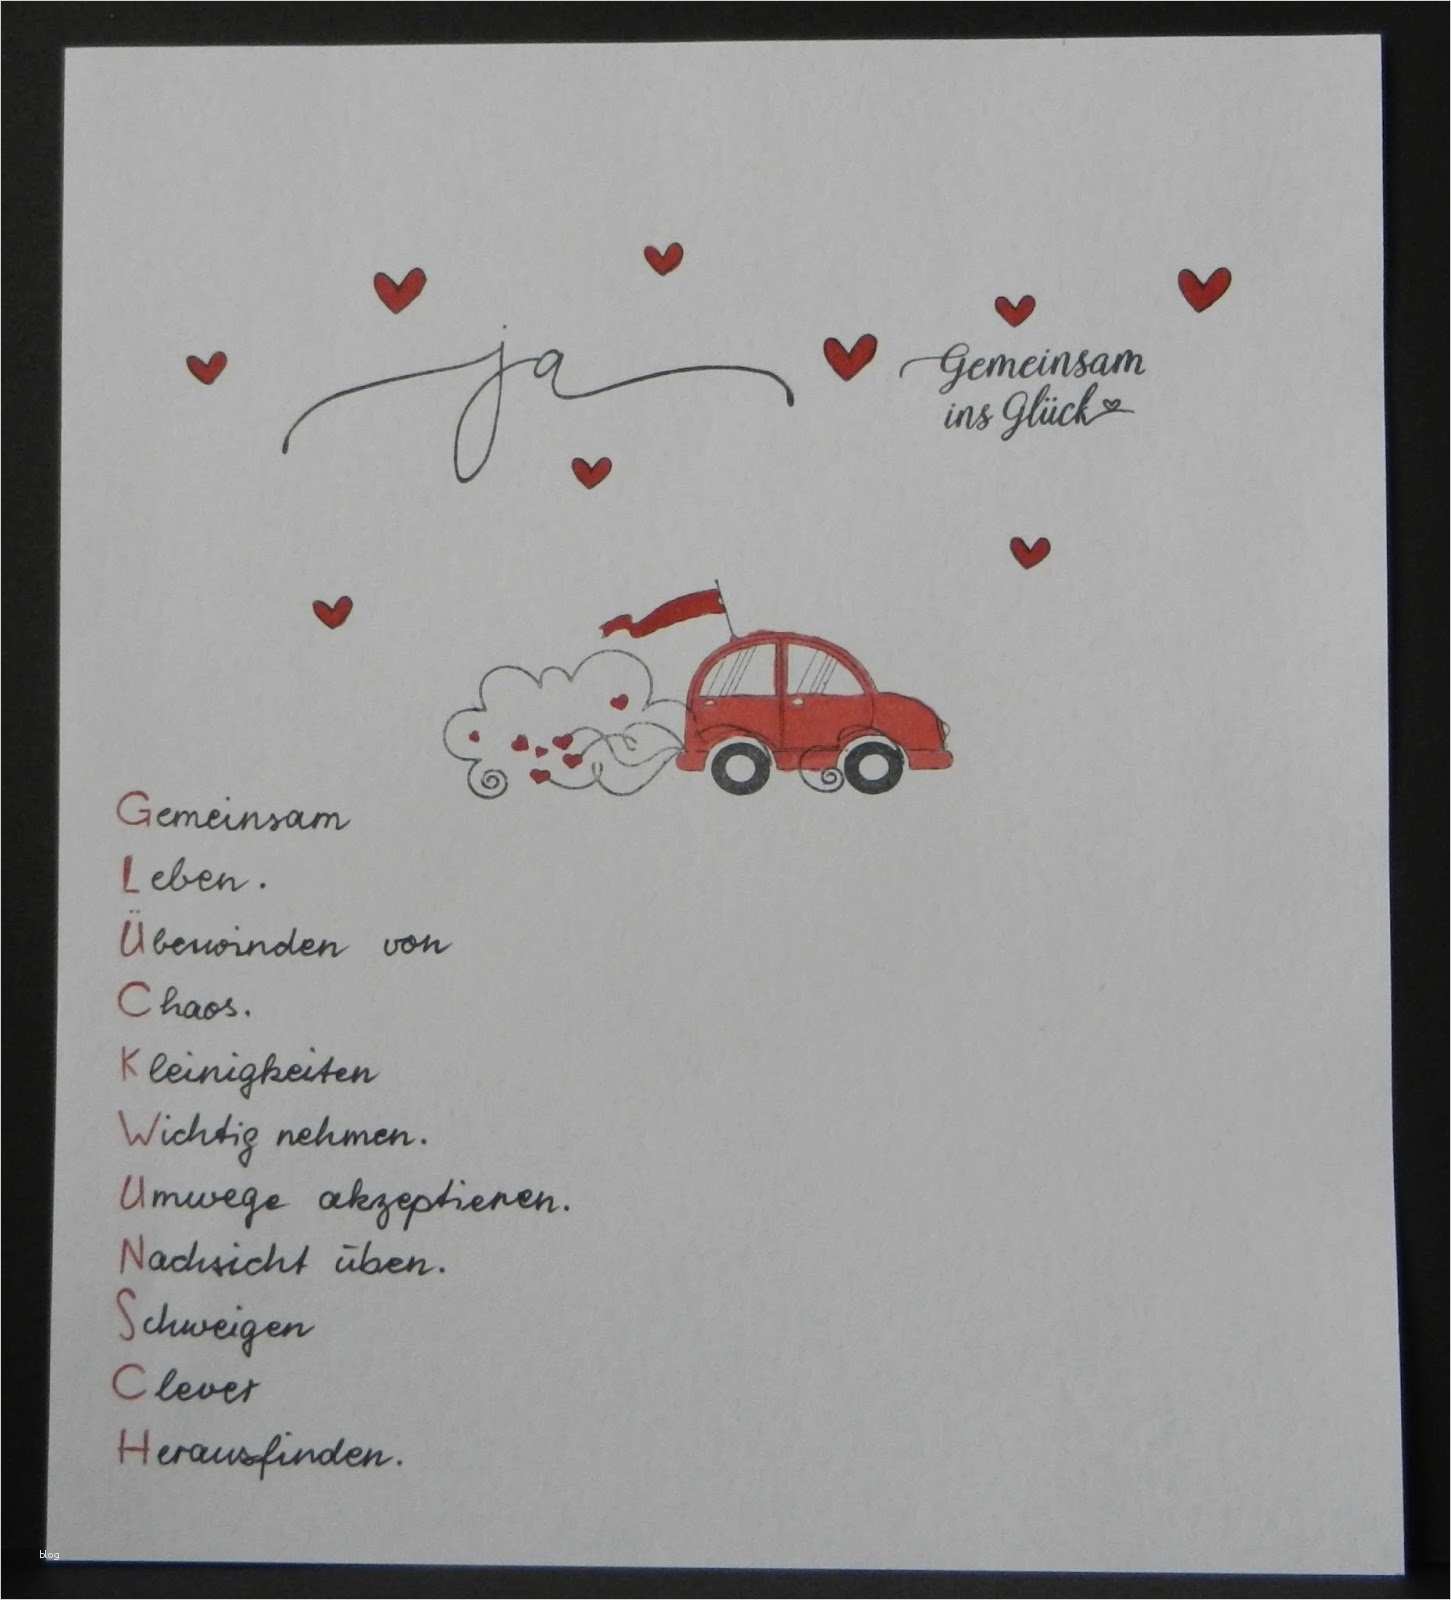 ja
Gemeinsam
ins Glück
Gemeinsam
Leben.
Überwinden von
Chaos.
Kleinigkeiten
Wichtig nehmen.
Umwege akzeptieren.
Nachsicht üben.
Schweigen
Clever
Herausfinden.
blog